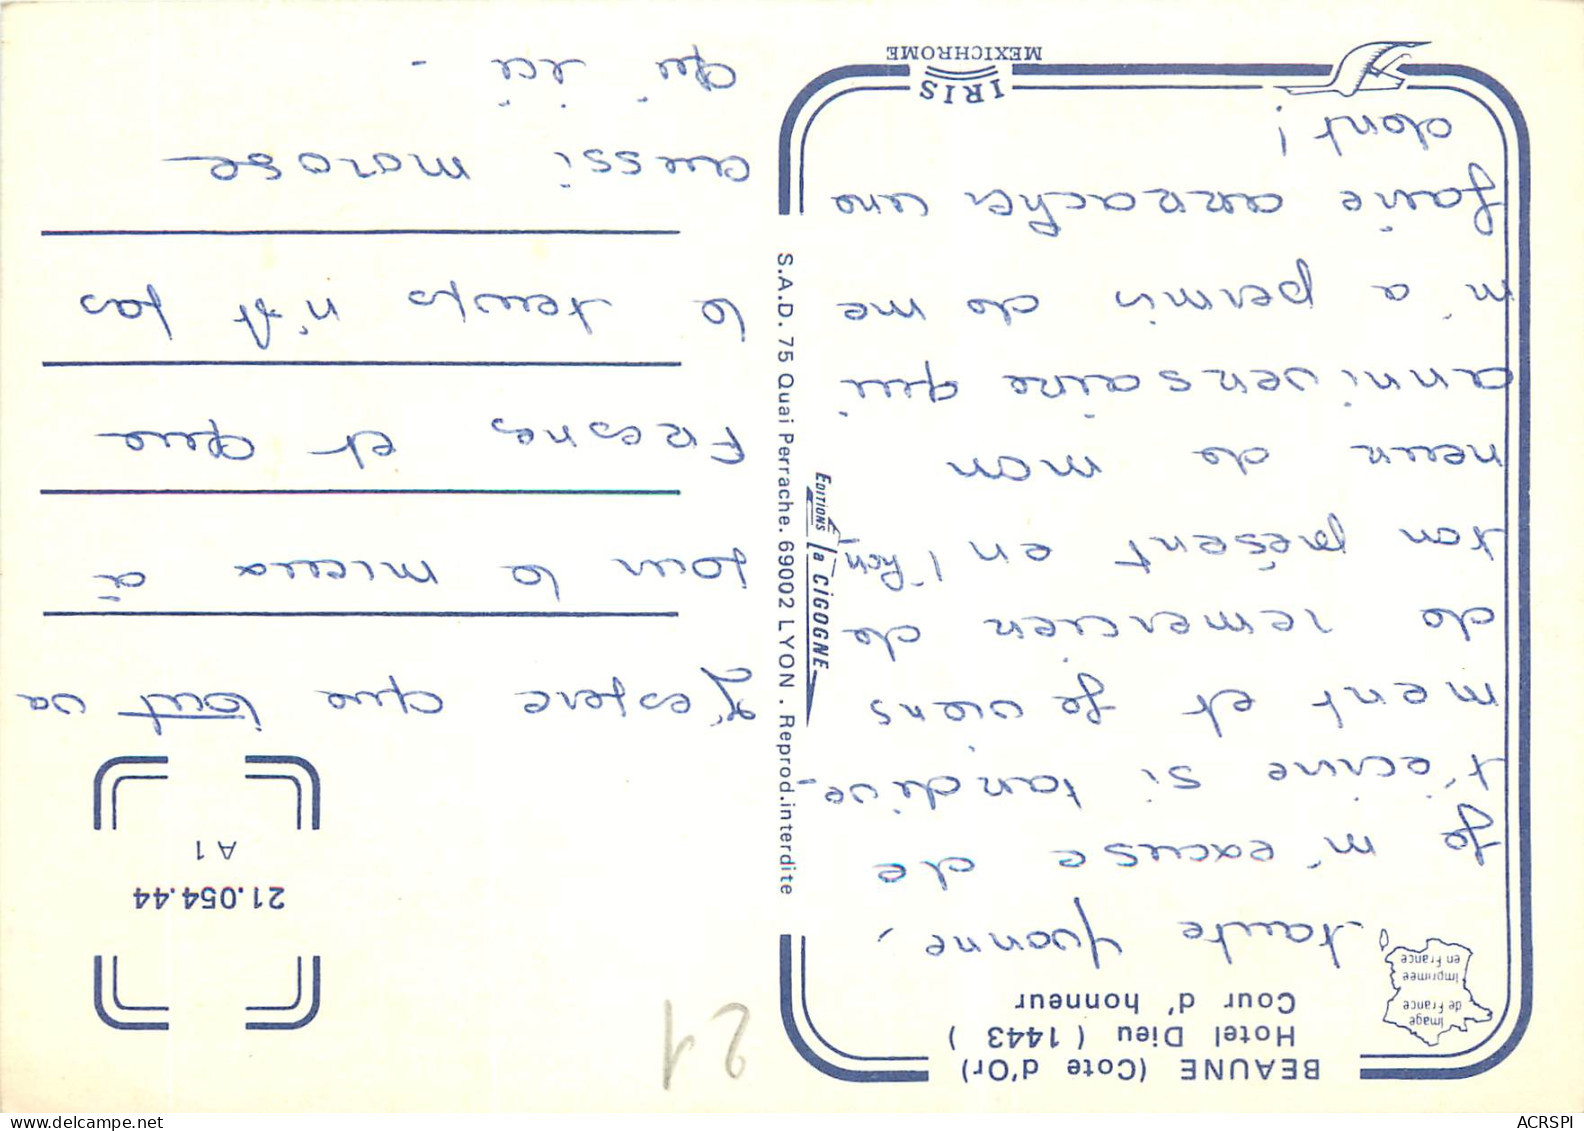 BEAUNE (Cote d'Or)
Hotel Dieu ( 1443 )
Cour d' honneur
Image
de France
Imprimée
en France
tante Yvonne,
Je m'excuse de
t'écrire si tardive-
ment et je viens
de remercier de
ton présent en l'hon-
neur de mon
anniversaire qui
m'a permis de me
faire arracher une
dent!
IRIS
MEXICHROME
EDITIONS la CIGOGNE
S.A.D. 75 Quai Perrache. 69002 LYON . Reprod.interdite
21
21.054.44
A 1
J'espère que tout va
pour le mieux à
Fresnes et que
le temps n'est pas
aussi morose
qu'ici -
ACRSPI